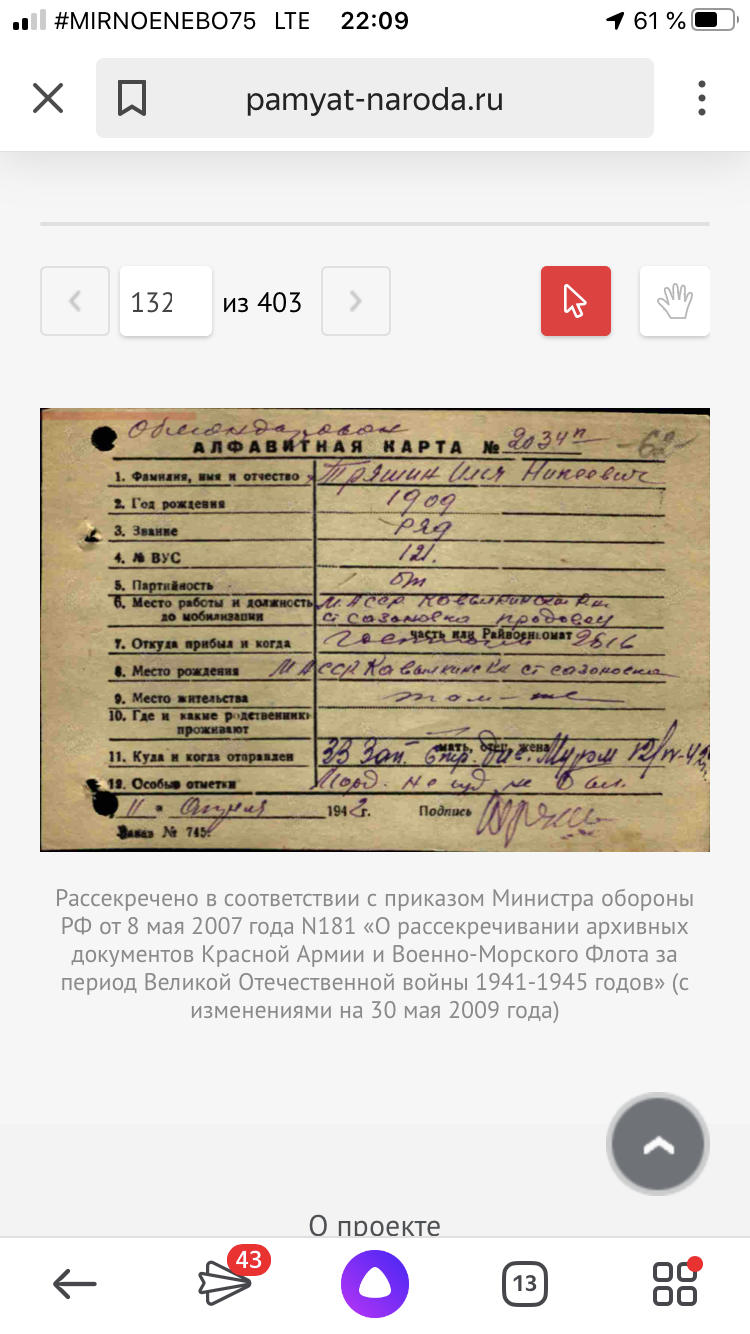 #MIRNOENEBO75 LTE 22:09 61 %
pamyat-naroda.ru
132 из 403
АЛФАВИТНАЯ КАРТА № 2034п -62
1. Фамилия, имя и отчество Тряшин Илья
2. Год рождения 1909
3. Звание ряд
4. № ВУС 121.
5. Партийность бп
6. Место работы и должность МАССР Ковылкинский
до мобилизации ст сазоновка продавец
7. Откуда прибыл и когда часть или Райвоенкомат 2616
8. Место рождения МАССР Ковылкинск ст сазоновка
9. Место жительства там-же
10. Где и какие родственники
проживают
мать, отец, жена
11. Куда и когда отправлен 33 Зап. 12/IV-42
12. Особые отметки Морд.
11 " Апреля 1942г. Подпись
Заказ № 745.
Рассекречено в соответствии с приказом Министра обороны
РФ от 8 мая 2007 года N181 «О рассекречивании архивных
документов Красной Армии и Военно-Морского Флота за
период Великой Отечественной войны 1941-1945 годов» (с
изменениями на 30 мая 2009 года)
О проекте
43
13